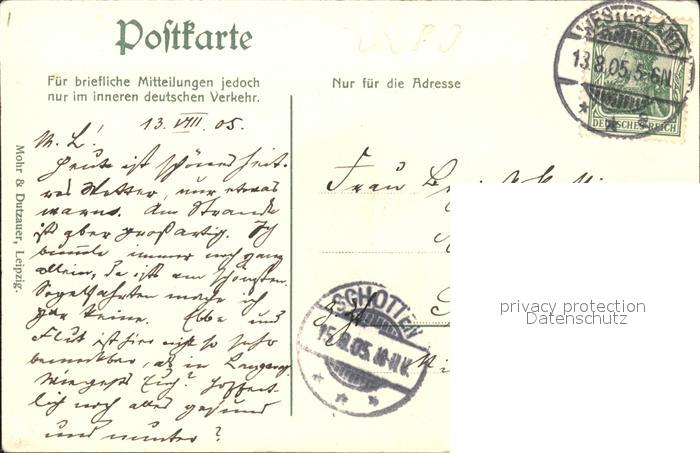 Postkarte
Für briefliche Mitteilungen jedoch
nur im inneren deutschen Verkehr.
Nur für die Adresse
WESTERLAND
13.8.05.5-6N.
DEUTSCHES REICH
13. VIII. 05.
M. L.!
Heute ist schönes heit-
res Wetter, nur etwas
warm. Am Strande
ist aber großartig. Ich
bummle immer noch ganz
allein, da ists am schönsten.
Segelfahrten mache ich
gar keine. Ebbe und
Flut ist hier nicht so sehr
bemerkbar, als in
Wie gehts Euch? Hoffent-
lich noch alles gesund
und munter?
Mohr & Dutzauer, Leipzig.
Frau
SCHOTTEN
15.8.05.10-11V.
privacy protection
Datenschutz